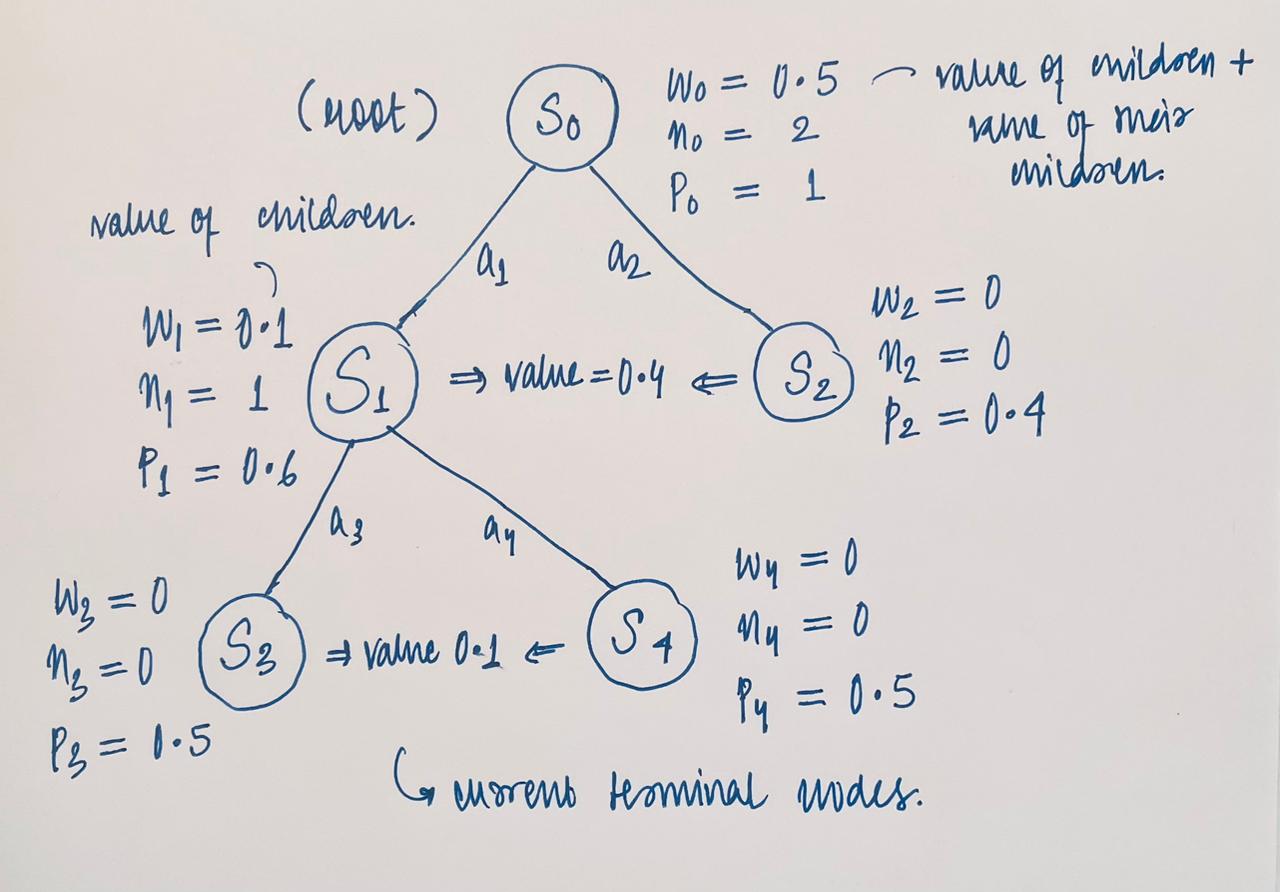 (root)
S0
W0 = 0.5
n0 = 2
P0 = 1
value of children +
value of their
children.
value of children.
a1
a2
W1 = 0.1
n1 = 1
P1 = 0.6
S1
⇒ value = 0.4 ⇐
S2
W2 = 0
n2 = 0
P2 = 0.4
a3
a4
W3 = 0
n3 = 0
P3 = 0.5
S3
⇒ value 0.1 ⇐
S4
W4 = 0
n4 = 0
P4 = 0.5
current terminal nodes.